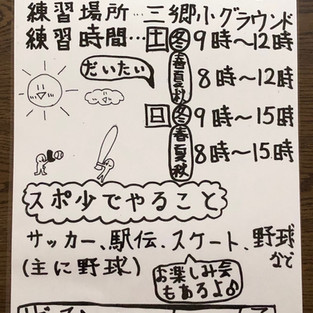 練習場所…三郷小グラウンド
練習時間…土 冬 9時〜12時
だいたい
春夏秋 8時〜12時
日 冬 9時〜15時
春夏秋 8時〜15時
スポ少でやること
サッカー、駅伝、スケート、野球など
(主に野球)
お楽しみ会
もあるよ♪